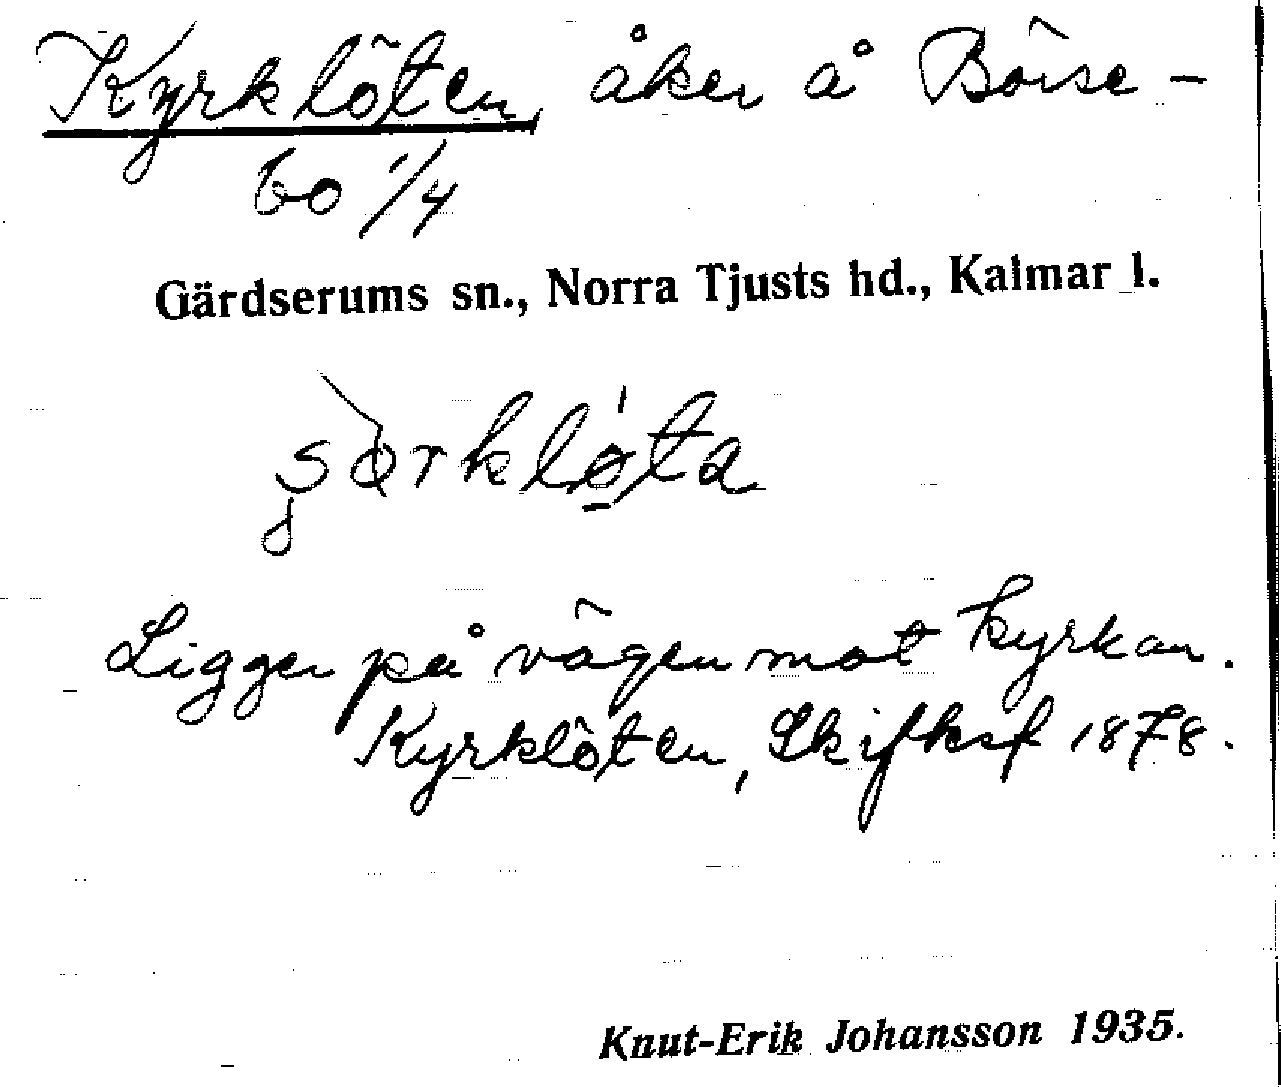 Kyrklöten, åker å Börse-
bo 1/4
Gärdserums sn., Norra Tjusts hd., Kalmar l.
Ligger på vägen mot kyrkan.
Kyrklöten, Skifksf 1878.
Knut-Erik Johansson 1935.